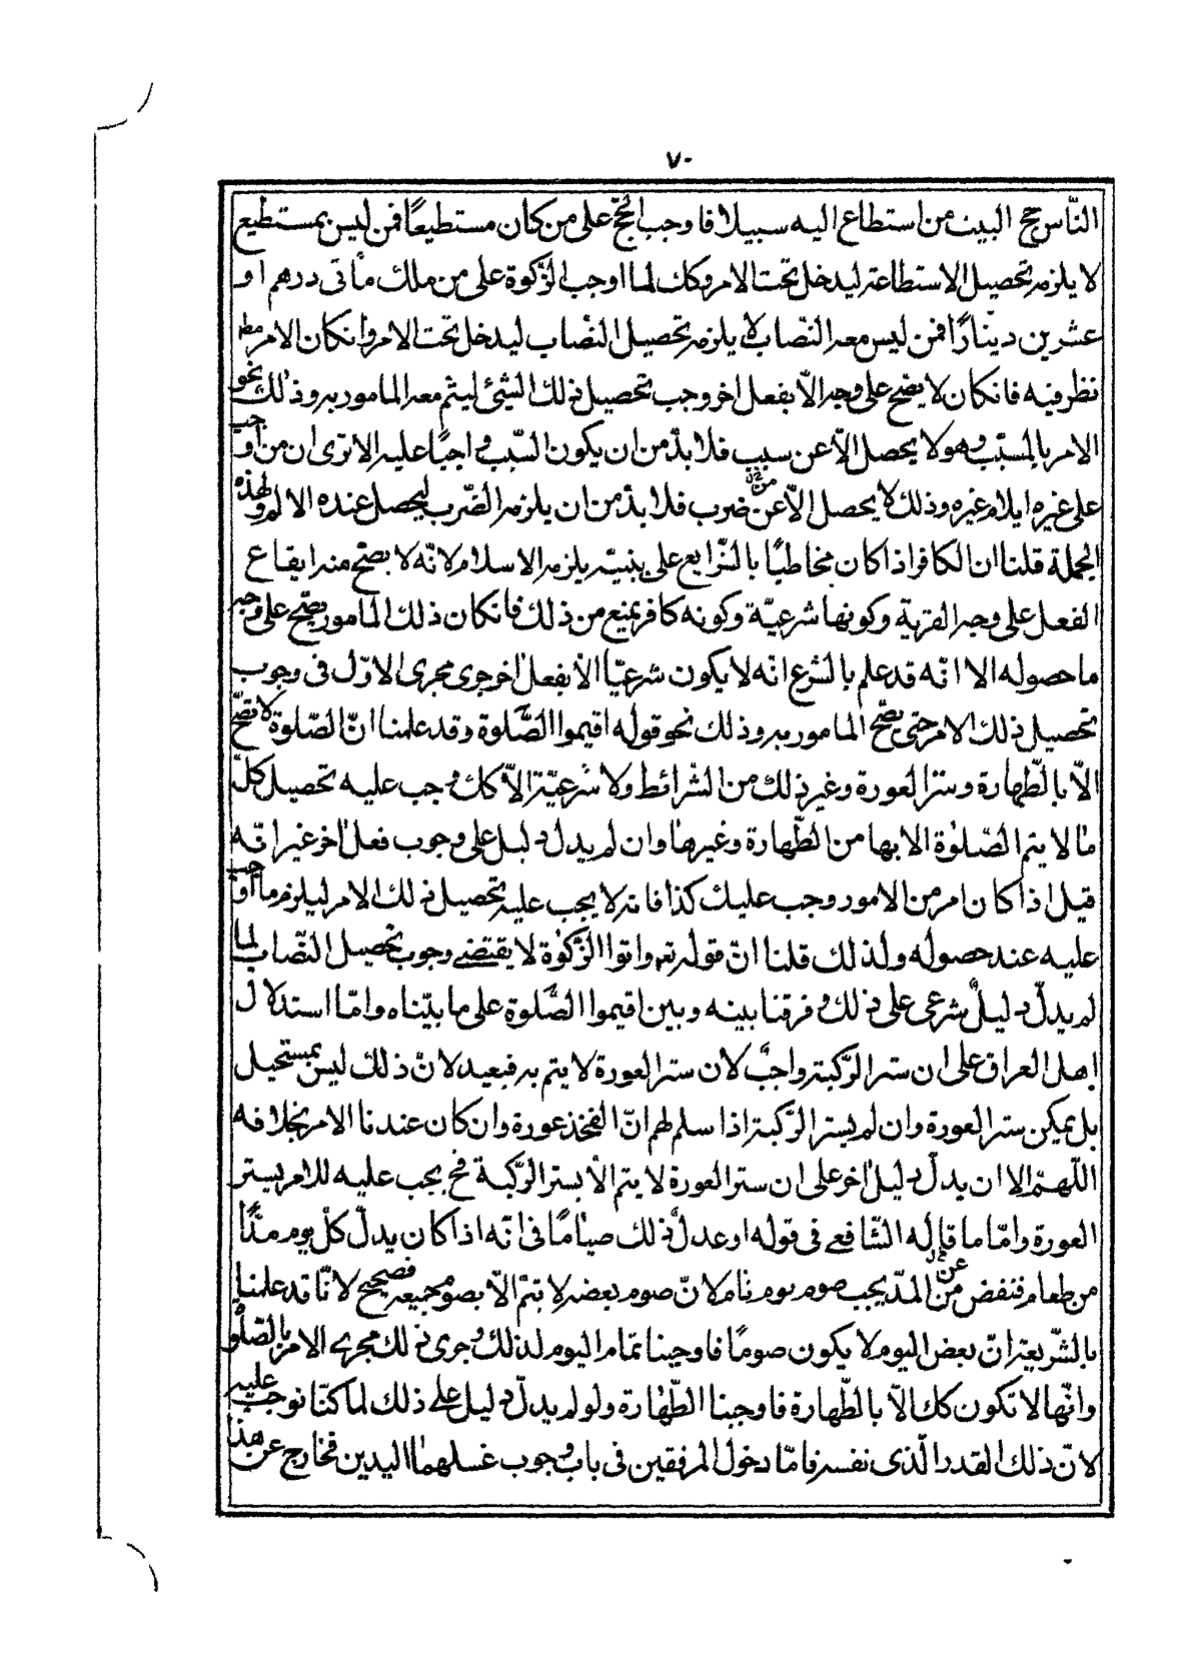 ٧٠
النّاس حج البيت من استطاع اليه سبيلا فاوجب الحجّ على من كان مستطيعًا فمن ليس بمستطيع
لا يلزمه تحصيل الاستطاعة ليدخل تحت الامر وكك لما اوجب الزّكوة على من ملك مأتى درهم او
عشرين دينارًا فمن ليس معه النّصاب لا يلزمه تحصيل النّصاب ليدخل تحت الامر وانكان الامر مط
نظر فيه فانكان لا يصّح على وجه الاّ بفعل اخر وجب تحصيل ذلك الشّئ ليتمّ معه المامور به وذلك نحو
الامر بالمسبّب وهو لا يحصل الاّ عن سبب فلا بدّ من ان يكون السّبب واجبًا عليه الا ترى ان من اوجب
على غيره ايلام غيره وذلك لا يحصل الاّ عن ضرب فلا بدّ من ان يلزمه الضّرب ليحصل عنده الالم ولهذه
الجملة قلنا ان الكافر اذا كان مخاطبًا بالشّرايع على بنيته يلزمه الاسلام لانّه لا يصّح منه ايقاع
الفعل على وجه القربة وكونها شرعيّة وكونه كافر يمنع من ذلك فانكان ذلك المامور يصّح على وجه
ما حصوله الا انّه قد علم بالشّرع انّه لا يكون شرعيّا الاّ بفعل اخر جرى مجرى الاوّل فى وجوب
تحصيل ذلك الامر حتى يصّح المامور به وذلك نحو قوله اقيموا الصّلوة وقد علمنا انّ الصّلوة لا تصّح
الاّ بالطّهارة وستر العورة وغير ذلك من الشّرائط ولا شرعيّة الاّ كك وجب عليه تحصيل كلّ
ما لا يتم الصّلوة الا بها من الطّهارة وغيرها وان لم يدل دليل على وجوب فعل اخر غير انّه
قيل اذا كان امر من الامور وجب عليك كذا فانه لا يجب عليه تحصيل ذلك الامر ليلزم ما اوجب
عليه عند حصوله ولذلك قلنا انّ قوله تعم واتوا الزّكوة لا يقتضے وجوب تحصيل النّصاب لما
لم يدلّ دليلٌ شرعى على ذلك وفرقنا بينه وبين اقيموا الصّلوة على ما بيّناه وامّا استدلال
اهل العراق على ان ستر الرّكبة واجبٌ لان ستر العورة لا يتم به فبعيد لانّ ذلك ليس بمستحيل
بل يمكن ستر العورة وان لم يستر الرّكبة اذا سلم لهم انّ الفخذ عورة وان كان عندنا الامر بخلافه
اللّهمّ الا ان يدلّ دليل اخر على ان ستر العورة لا يتم الاّ بستر الرّكبة فح يجب عليه للامر بستر
العورة وامّا ما قاله الشّافعے فى قوله او عدل ذلك صيامًا فى انّه اذا كان يدلّ كلّ يوم مدًّا
من طعام فنقض من عن المدّ يجب صوم يوم تام لانّ صوم بعضه لا يتمّ الاّ بصوم جميعه فصحيح لانّا قد علمنا
بالشّريعة انّ بعض اليوم لا يكون صومًا فاوجبنا تمام اليوم لذلك وجرى ذلك مجرى الامر بالصّلوة
وانّها لا تكون كك الاّ بالطّهارة فاوجبنا الطّهارة ولو لم يدلّ دليل علے ذلك لما كنّا نوجب عليه
لانّ ذلك القدر الّذى نفسه فامّا دخول المرفقين فى باب وجوب غسلهما اليدين فخارج عن هذا